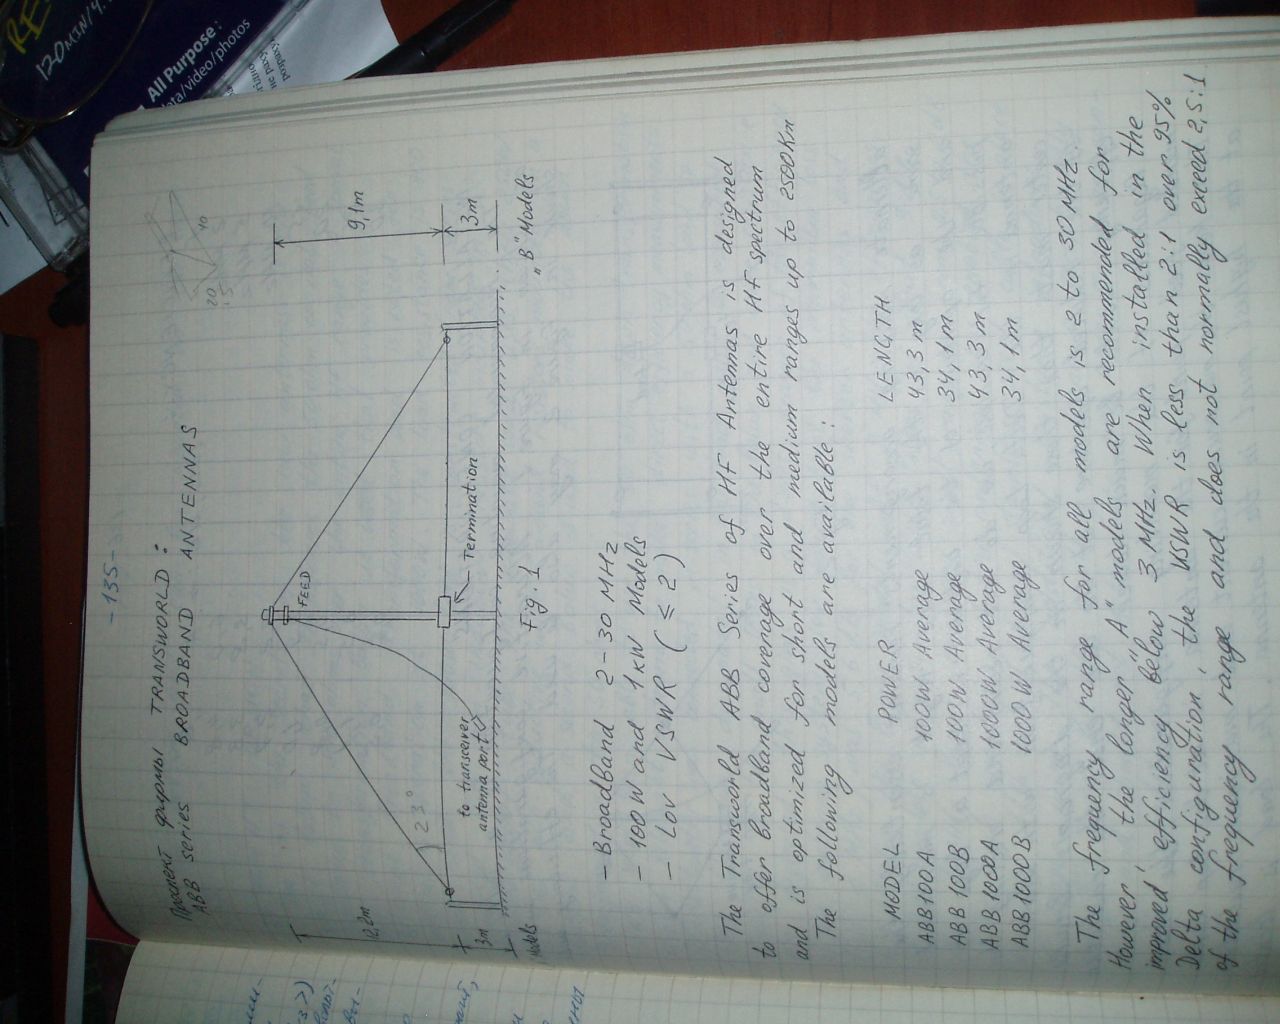 -135-
Проспект фирмы TRANSWORLD:
ABB series BROADBAND ANTENNAS
FEED
23°
to transceiver
antenna port
Termination
12,2m
3m
Models
9,1m
3m
„B" Models
20
15
10
Fig. 1
- Broadband 2-30 MHz
- 100W and 1kW Models
- Lov VSWR (≤ 2)
The Transworld ABB Series of HF Antennas is designed
to offer broadband coverage over the entire HF spectrum
and is optimized for short and medium ranges up to 2500Km
The following models are available:
MODEL POWER LENGTH
ABB100A 100W Average 43,3 m
ABB 100B 100W Average 34,1 m
ABB 1000A 1000W Average 43,3 m
ABB 1000B 1000W Average 34,1 m
The frequency range for all models is 2 to 30 MHz.
However, the longer „A" models are recommended for
improved efficiency below 3 MHz. When installed in the
Delta configuration, the VSWR is less than 2:1 over 95%
of the frequency range and does not normally exceed 2,5:1
RE
120MIN/4.
All Purpose:
data/video/photos